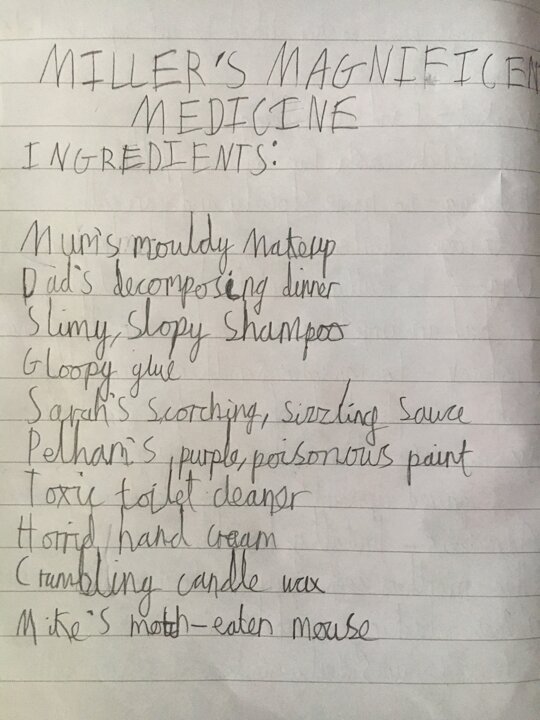 MILLER'S MAGNIFICEN
MEDICINE
INGREDIENTS:
Mum's mouldy Makeup
Dad's decomposing dinner
Slimy, Slopy Shampoo
Gloopy glue
Sarah's scorching, sizzling sauce
Pelham's, purple, poisonous paint
Toxic toilet cleaner
Horrid hand cream
Crumbling candle wax
Mike's moth-eaten mouse